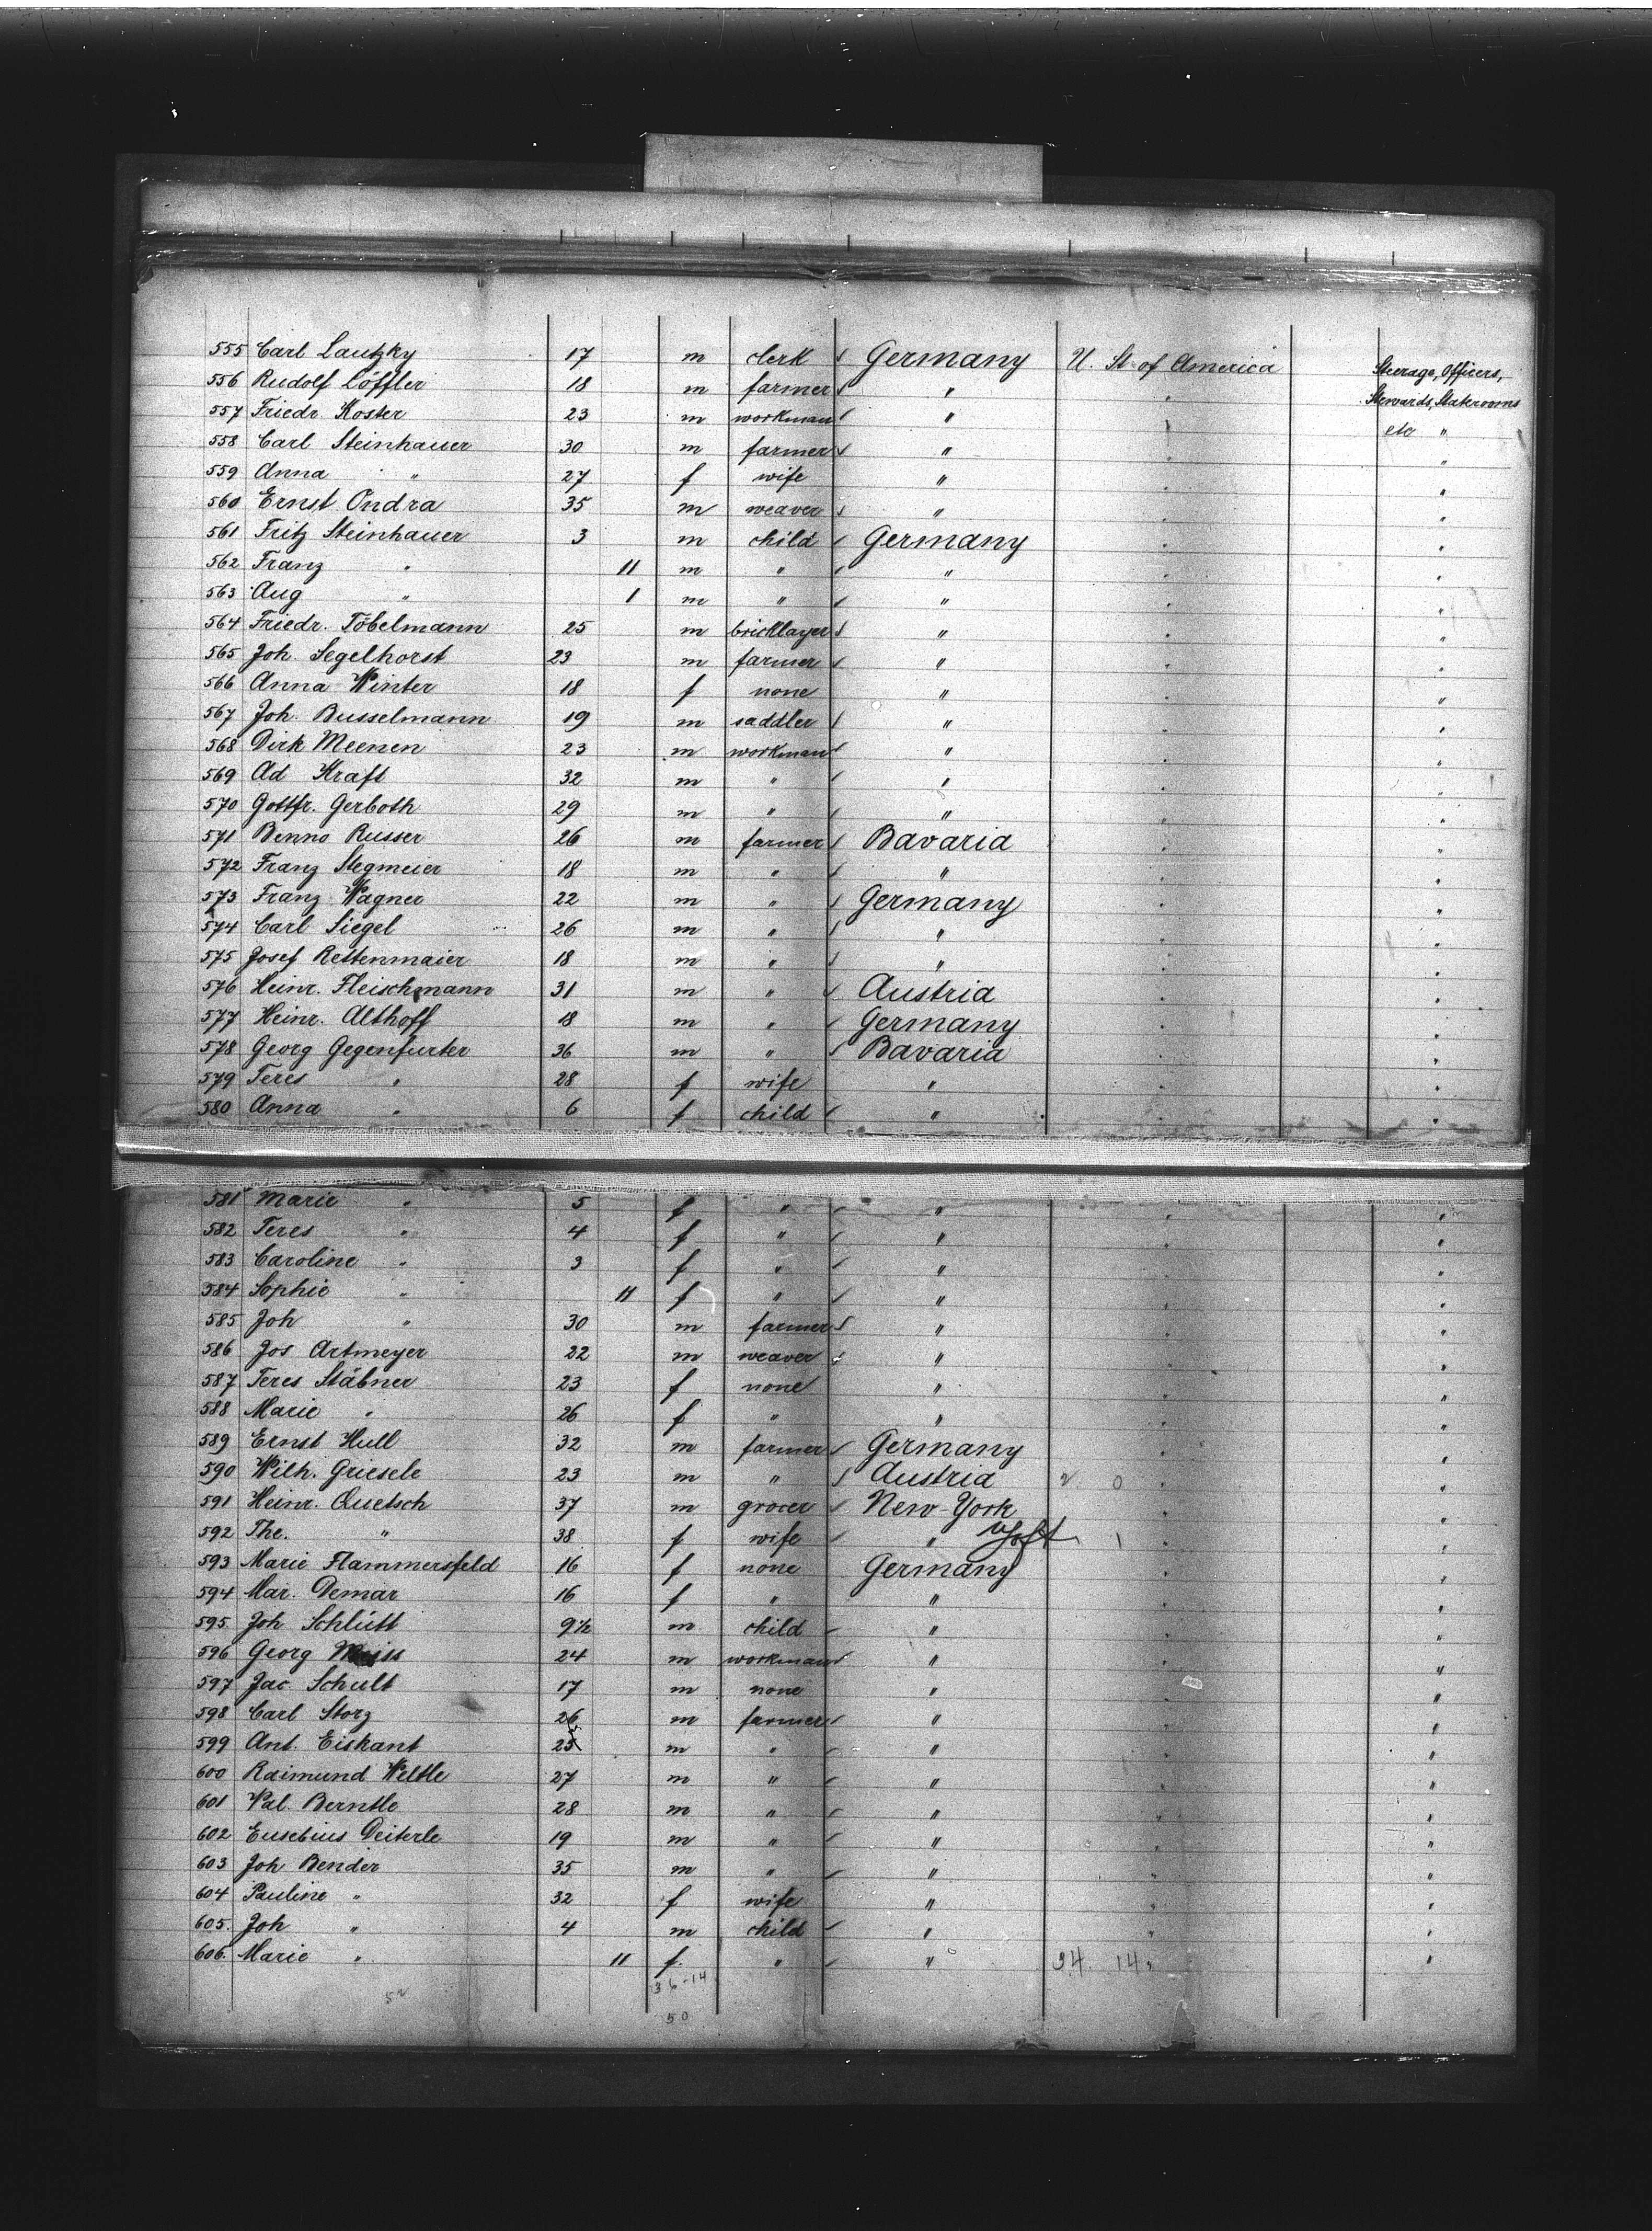 555 Carl Lautzky 17 m clerk Germany U. St. of America Steerage, Officers,
556 Rudolf Löffler 18 m farmer " " Stewards, Staterooms
557 Friedr. Koster 23 m workman " " etc "
558 Carl Steinhauer 30 m farmer " " "
559 Anna " 27 f wife " " "
560 Ernst Ondra 35 m weaver " " "
561 Fritz Steinhauer 3 m child Germany " "
562 Franz " 11 m " " " "
563 Aug " 1 m " " " "
564 Friedr. Töbelmann 25 m bricklayer " " "
565 Joh. Segelhorst 23 m farmer " " "
566 Anna Winter 18 f none " " "
567 Joh. Busselmann 19 m saddler " " "
568 Dirk Meenen 23 m workman " " "
569 Ad Kraft 32 m " " " "
570 Gottfr. Gerboth 29 m " " " "
571 Benno Russer 26 m farmer Bavaria " "
572 Franz Stegmeier 18 m " " " "
573 Franz Wagner 22 m " Germany " "
574 Carl Siegel 26 m " " " "
575 Josef Rettenmaier 18 m " " " "
576 Heinr. Fleischmann 31 m " Austria " "
577 Heinr. Althoff 18 m " Germany " "
578 Georg Gegenfurter 36 m " Bavaria " "
579 Teres " 28 f wife " " "
580 Anna " 6 f child " " "
581 Marie " 5 f " " " "
582 Teres " 4 f " " " "
583 Caroline " 3 f " " " "
584 Sophie " 11 f " " " "
585 Joh " 30 m farmer " " "
586 Jos Artmeyer 22 m weaver " " "
587 Teres Stäbner 23 f none " " "
588 Marie " 26 f " " " "
589 Ernst Hull 32 m farmer Germany " "
590 Wilh. Griesele 23 m " Austria 2 0 " "
591 Heinr. Quetsch 37 m grocer New-York " "
592 The. " 38 f wife " 1 " "
593 Marie Flammersfeld 16 f none Germany " "
594 Mar. Demar 16 f " " " "
595 Joh Schlütt 9½ m child " " "
596 Georg 24 m workman " " "
597 Jac Schult 17 m none " " "
598 Carl Storz 26 m farmer " " "
599 Ant. Eiskant 25 m " " " "
600 Raimund Weltle 27 m " " " "
601 Val. Berntle 28 m " " " "
602 Eusebius Deiterle 19 m " " " "
603 Joh Bender 35 m " " " "
604 Pauline " 32 f wife " " "
605. Joh " 4 m child " " "
606. Marie " 11 f. " " 34. 14 " "
36-14
52 50